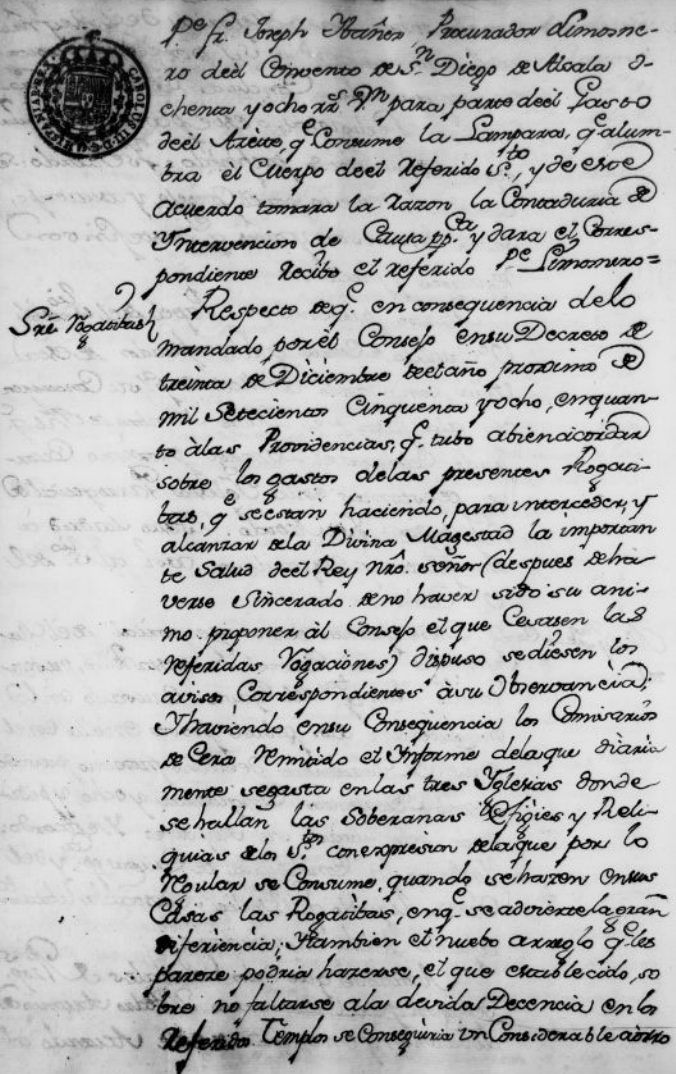 Pe. fr. Joseph Ibañez Procurador Limosne-
ro deel Convento de Sn. Diego de Alcala o-
chenta y ocho rrs. Vn. para parte deel Gasto
deel Azeite, qe. Consume la Lampara, qe. alum-
bra el Cuerpo deel Referido Sto., y de este
Acuerdo tomara la Razon la Contaduria de
Yntervencion de Causa ppca. y dara el Corres-
pondiente Recibo el referido Pe. Limosnero=
Sre. Rogatibas
Respecto de q. en consequencia delo
mandado por el Consejo en su Decreto de
treinta de Diciembre deel año proximo de
mil Setecientos Cinquenta y ocho, en quan-
to àlas Providencias, q. tubo abien acordar
sobre los gastos delas presentes Rogati-
bas, qe. se estan haciendo, para interceder, y
alcanzar dela Divina Magestad la importan
te Salud deel Rey nrô. señor (despues deha-
verse Sincerado de no haver sido su ani-
mo proponer àl Consejo el que Cesasen las
referidas Rogaciones) dispuso se diesen los
avisos Correspondientes à su Observancia;
Y haviendo en su Consequencia los Comisarios
de Cera remitido el Ynforme dela que diaria
mente se gasta en las tres Yglesias donde
se hallan las Soberanas Efigies y Reli-
quias delos Stos. con expresion dela que por lo
regular se Consume, quando se hazen en sus
Casas las Rogatibas, en q. se advierte la gran
diferiencia; Y tambien el nuebo arreglo qe. les
pareze podria hazerse, el que establecido, so
bre no faltarse ala devida Decencia en los
Referidos Templos se Conseguiria un Considerable aorro
CAROLUS III D G HISPANIAR REX